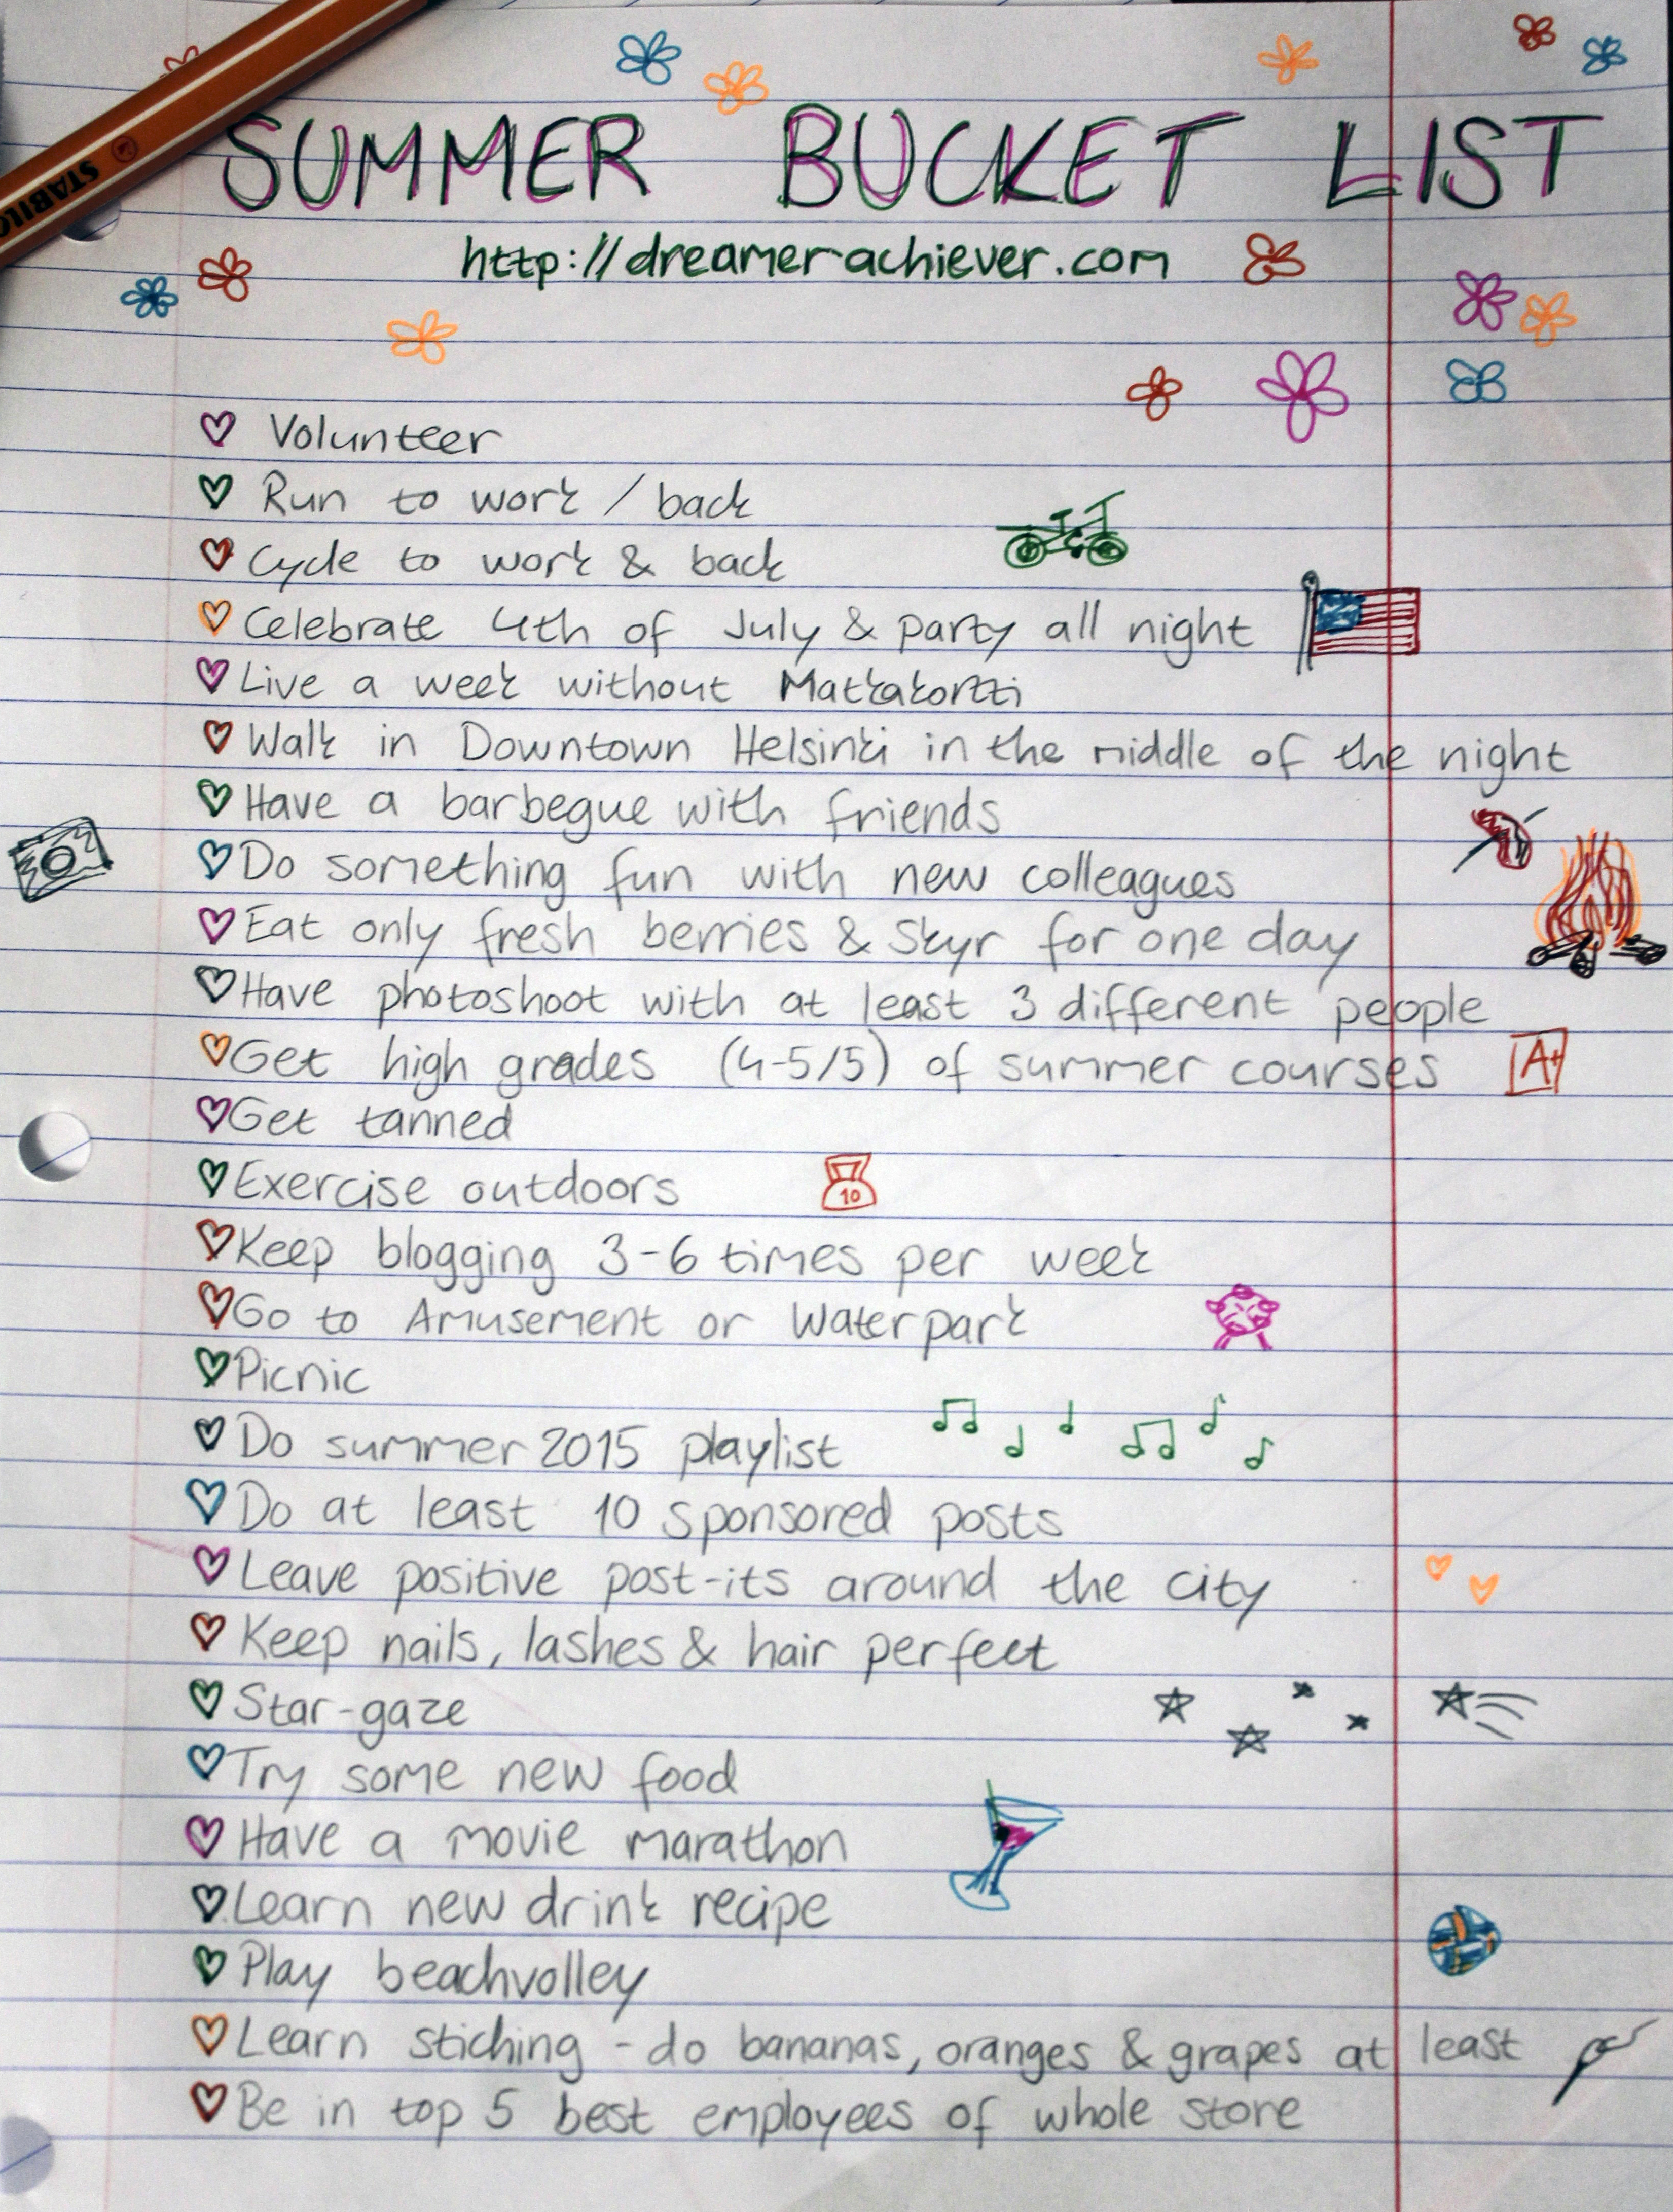 STABILO
SUMMER BUCKET LIST
http://dreamerachiever.com
Volunteer
Run to work / back
Cycle to work & back
Celebrate 4th of July & party all night
Live a week without Matkakortti
Walk in Downtown Helsinki in the middle of the night
Have a barbegue with friends
Do something fun with new colleagues
Eat only fresh berries & Skyr for one day
Have photoshoot with at least 3 different people
Get high grades (4-5/5) of summer courses
A+
Get tanned
Exercise outdoors
10
Keep blogging 3-6 times per week
Go to Amusement or Waterpark
Picnic
Do summer 2015 playlist
Do at least 10 sponsored posts
Leave positive post-its around the city
Keep nails, lashes & hair perfect
Star-gaze
Try some new food
Have a movie marathon
Learn new drink recipe
Play beachvolley
Learn stiching - do bananas, oranges & grapes at least
Be in top 5 best employees of whole store